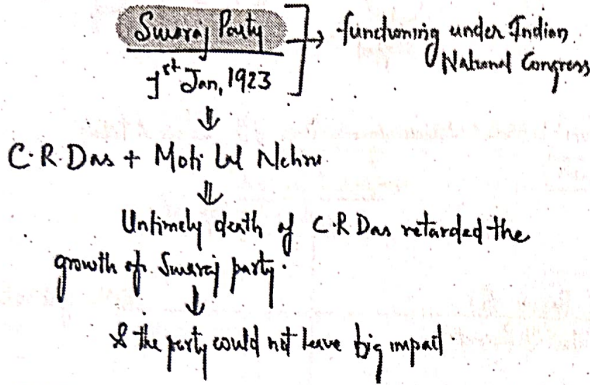 Swaraj Party → functioning under Indian
National Congress
1st Jan, 1923
⇓
C.R.Das + Moti Lal Nehru
⇓
Untimely death of C.R Das retarded the
growth of Swaraj party.
↓
& the party could not leave big impact.